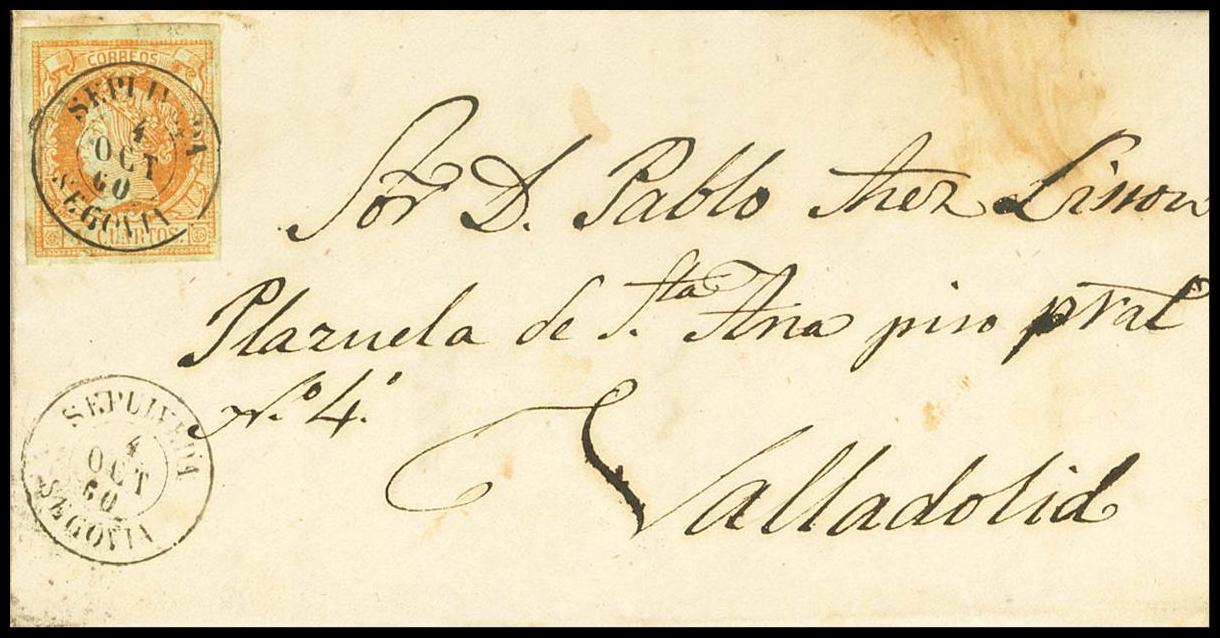 CORREOS
SEPULVEDA
4
OCT
60
SEGOVIA
4 CUARTOS.
Sor D. Pablo
Plazuela de Sta Ana piso pral
N.º 4.
Valladolid
SEPULVEDA
4
OCT
60
SEGOVIA